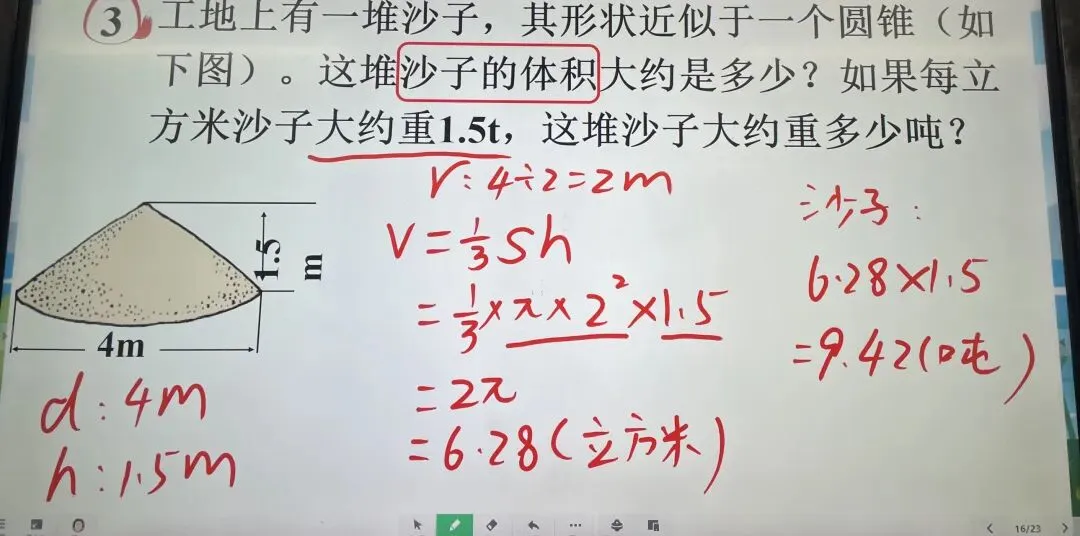 3 工地上有一堆沙子，其形状近似于一个圆锥（如
下图）。这堆沙子的体积大约是多少？如果每立
方米沙子大约重1.5t，这堆沙子大约重多少吨？
r：4÷2=2m
V=1/3Sh
=1/3×π×2²×1.5
=2π
=6.28（立方米）
沙子：
6.28×1.5
=9.42（吨）
1.5
m
4m
d：4m
h：1.5m
16/23